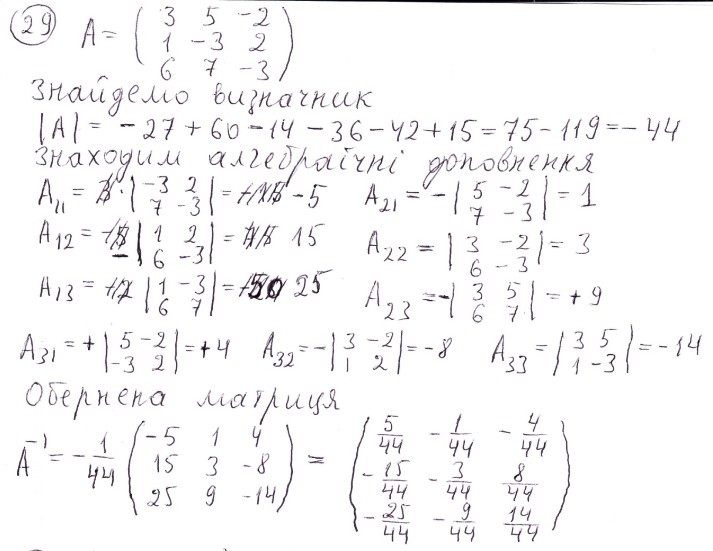 29 A = ( 3 5 -2
1 -3 2
6 7 -3 )
Знайдемо визначник
|A| = -27 + 60 - 14 - 36 - 42 + 15 = 75 - 119 = -44
Знаходим алгебраїчні доповнення
A₁₁ = | -3 2 ; 7 -3 | = -5 A₂₁ = - | 5 -2 ; 7 -3 | = 1
A₁₂ = - | 1 2 ; 6 -3 | = 15 A₂₂ = | 3 -2 ; 6 -3 | = 3
A₁₃ = | 1 -3 ; 6 7 | = 25 A₂₃ = - | 3 5 ; 6 7 | = +9
A₃₁ = + | 5 -2 ; -3 2 | = +4 A₃₂ = - | 3 -2 ; 1 2 | = -8 A₃₃ = | 3 5 ; 1 -3 | = -14
Обернена матриця
A⁻¹ = - 1/44 ( -5 1 4 ; 15 3 -8 ; 25 9 -14 ) = ( 5/44 - 1/44 - 4/44 ; - 15/44 - 3/44 8/44 ; - 25/44 - 9/44 14/44 )